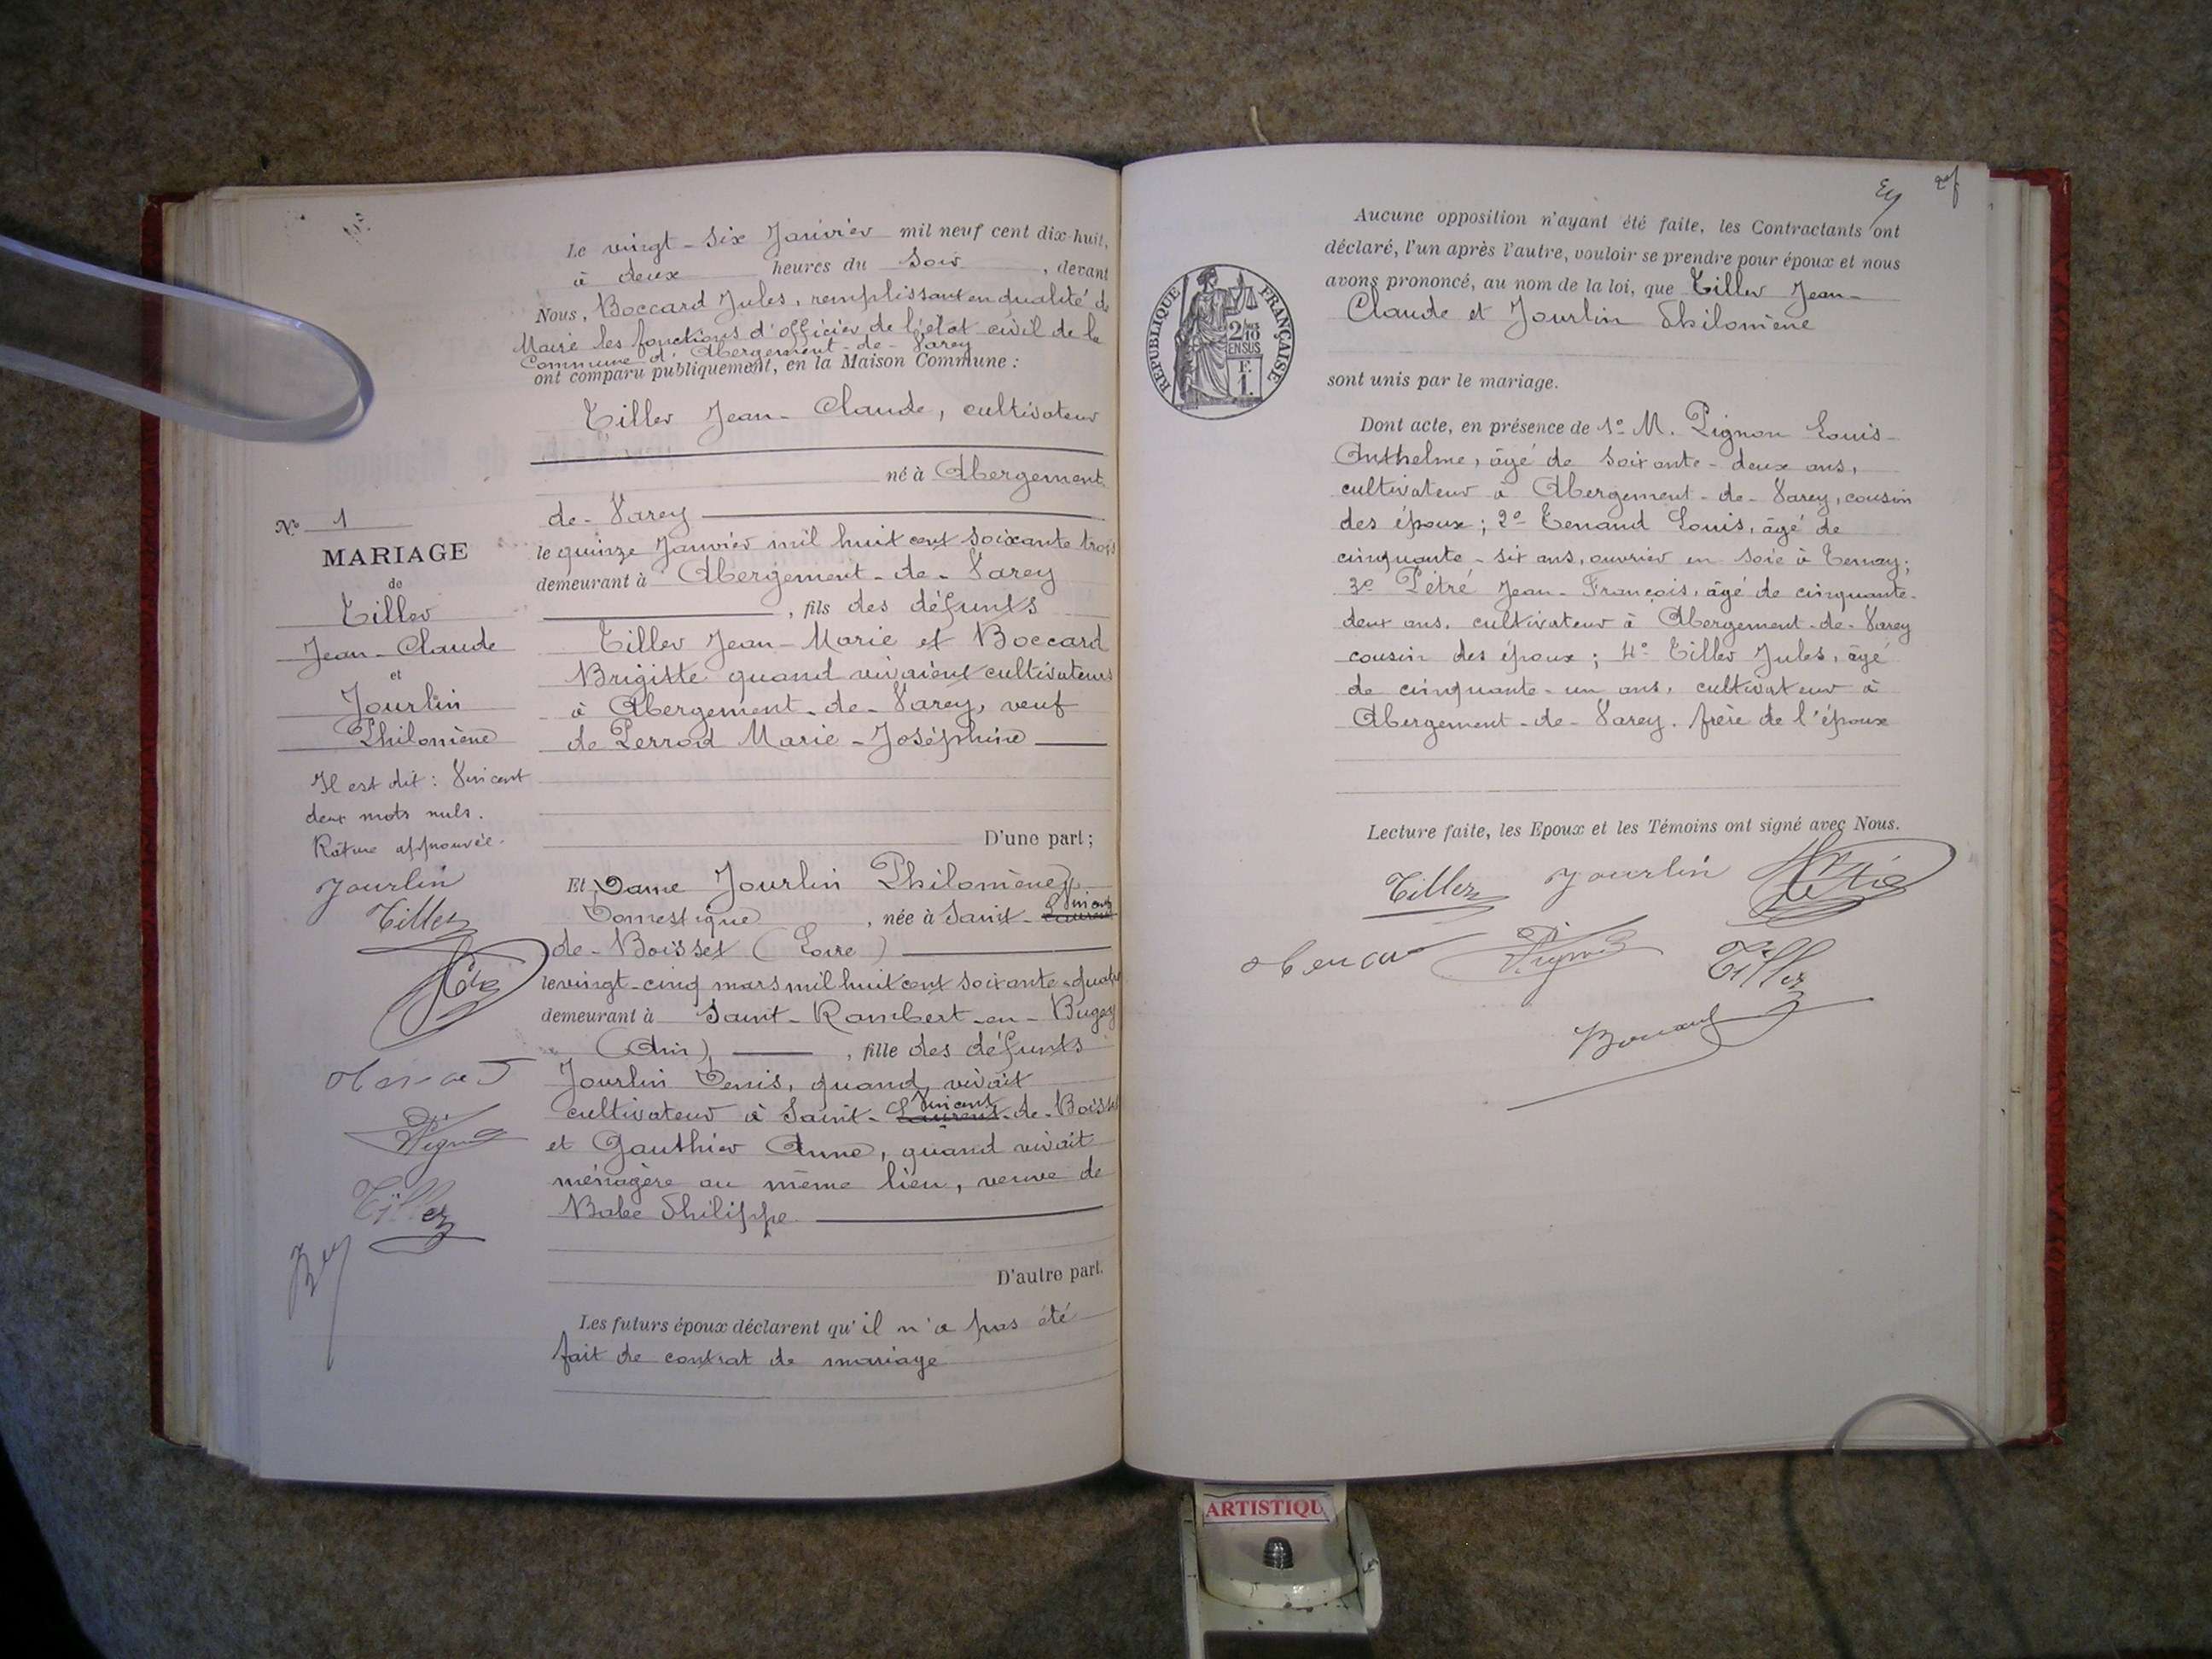 Le vingt-six Janvier mil neuf cent dix-huit,
à deux heures du soir, devant
Nous, Boccard Jules, remplissant en qualité de
Maire les fonctions d'officier de l'état civil de la
Commune d'Abergement-de-Varey
ont comparu publiquement, en la Maison Commune :
Tiller Jean-Claude, cultivateur
né à Abergement
de-Varey
le quinze Janvier mil huit cent soixante trois
demeurant à Abergement-de-Varey
, fils des défunts
Tiller Jean-Marie et Boccard
Brigitte quand vivaient cultivateurs
à Abergement-de-Varey, veuf
de Perrod Marie-Joséphine
D'une part ;
Et Dame Jourlin Philomène,
Domestique, née à Saint-Laurent Vincent
de-Boisset (Loire)
le vingt-cinq mars mil huit cent soixante-quatre
demeurant à Saint-Rambert-en-Bugey
(Ain), fille des défunts
Jourlin Denis, quand vivait
cultivateur à Saint-Laurent Vincent-de-Boisset
et Gauthier Anne, quand vivait
ménagère au même lieu, veuve de
Babe Philippe
D'autre part.
Les futurs époux déclarent qu'il n'a pas été
fait de contrat de mariage
No 1
MARIAGE
de
Tiller
Jean-Claude
et
Jourlin
Philomène
Il est dit : Vincent
deux mots nuls.
Râture approuvée.
Jourlin
Tiller
Tiller
REPUBLIQUE FRANÇAISE
2/10
EN SUS
F.
1.
Aucune opposition n'ayant été faite, les Contractants ont
déclaré, l'un après l'autre, vouloir se prendre pour époux et nous
avons prononcé, au nom de la loi, que Tiller Jean-
Claude et Jourlin Philomène
sont unis par le mariage.
Dont acte, en présence de 1º M. Pignon Louis-
Anthelme, âgé de soixante-deux ans,
cultivateur à Abergement-de-Varey, cousin
des époux ; 2º Tenand Louis, âgé de
cinquante-six ans, ouvrier en soie à Tenay ;
3º Pétré Jean-François, âgé de cinquante-
deux ans, cultivateur à Abergement-de-Varey
cousin des époux ; 4º Tiller Jules, âgé
de cinquante-un ans, cultivateur à
Abergement-de-Varey. frère de l'époux
Lecture faite, les Epoux et les Témoins ont signé avec Nous.
Tiller Jourlin
Tiller
Boccard
ARTISTIQU